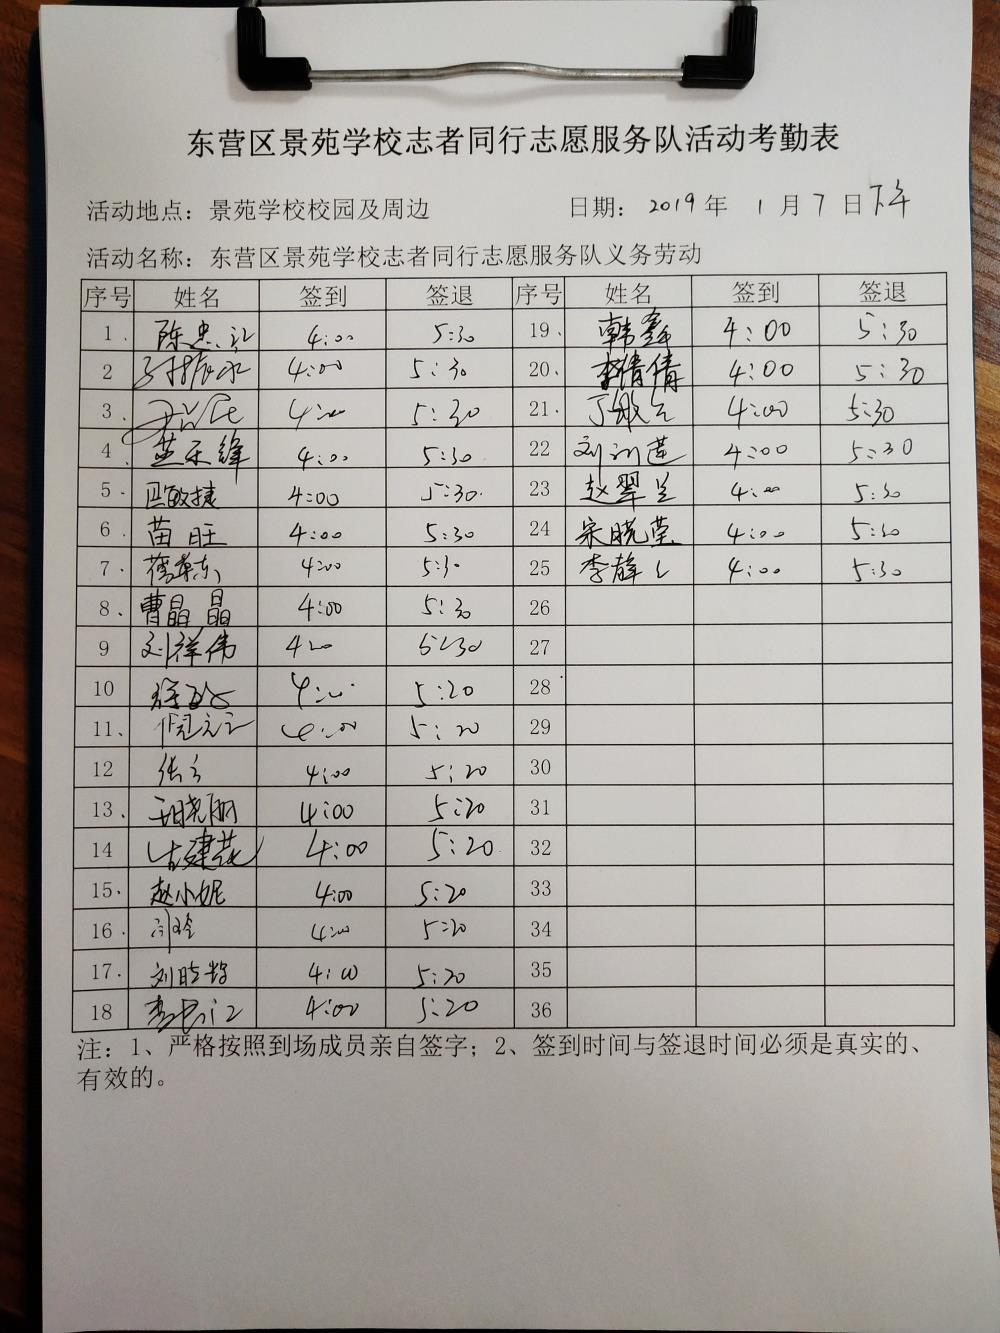 东营区景苑学校志者同行志愿服务队活动考勤表
活动地点：景苑学校校园及周边 日期：2019年 1月7日下午
活动名称：东营区景苑学校志者同行志愿服务队义务劳动
序号 姓名 签到 签退 序号 姓名 签到 签退
1. 4:00 5:30 19. 韩鑫 4:00 5:30
2 4:00 5:30 20. 李倩倩 4:00 5:30
3. 4:00 5:30 21. 4:00 5:30
4. 4:00 5:30 22 4:00 5:30
5. 匹敏捷 4:00 5:30. 23 赵翠兰 4:00 5:30
6. 苗旺 4:00 5:30 24 宋晓莹 4:00 5:30
7. 4:00 5:30 25 李静 4:00 5:30
8、 曹晶晶 4:00 5:30 26
9 刘祥伟 4:00 5:30 27
10 4:00 5:20 28
11、 4:00 5:20 29
12 4:00 5:20 30
13. 王晓丽 4:00 5:20 31
14 古建花 4:00 5:20 32
15. 赵小妮 4:00 5:20 33
16. 4:00 5:20 34
17. 4:00 5:20 35
18 4:00 5:20 36
注：1、严格按照到场成员亲自签字；2、签到时间与签退时间必须是真实的、
有效的。